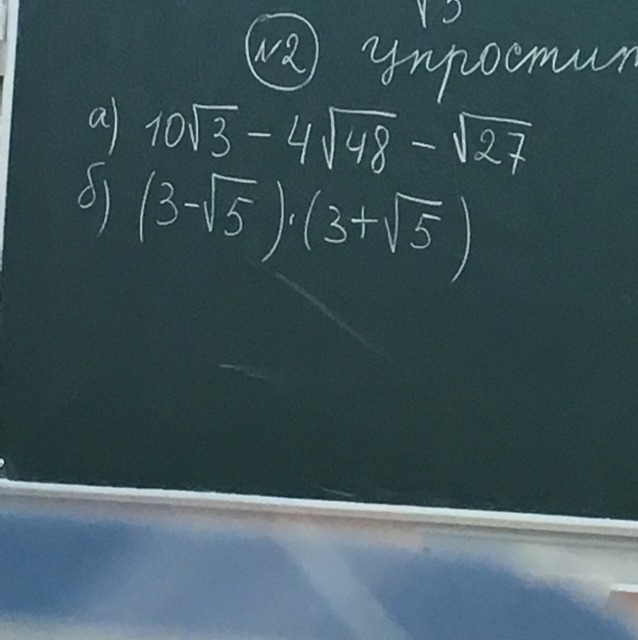 √3
№2 упростит
а) 10√3 - 4√48 - √27
б) (3-√5)·(3+√5)